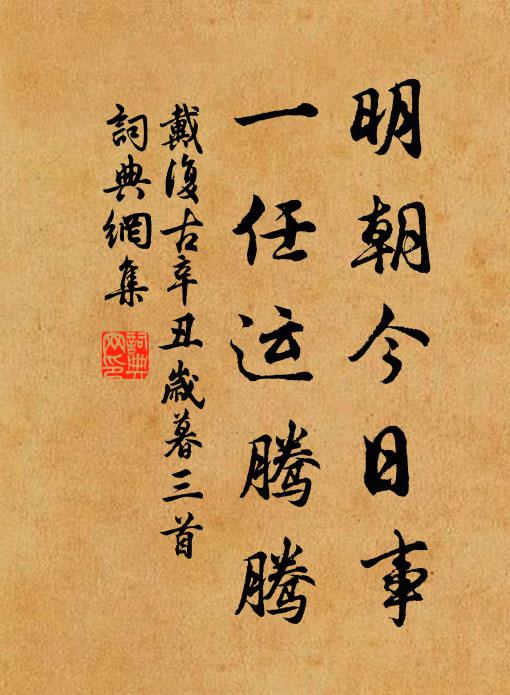 明朝今日事
一任运腾腾
戴復古辛丑歲暮三首
詞典網集
詞典网印